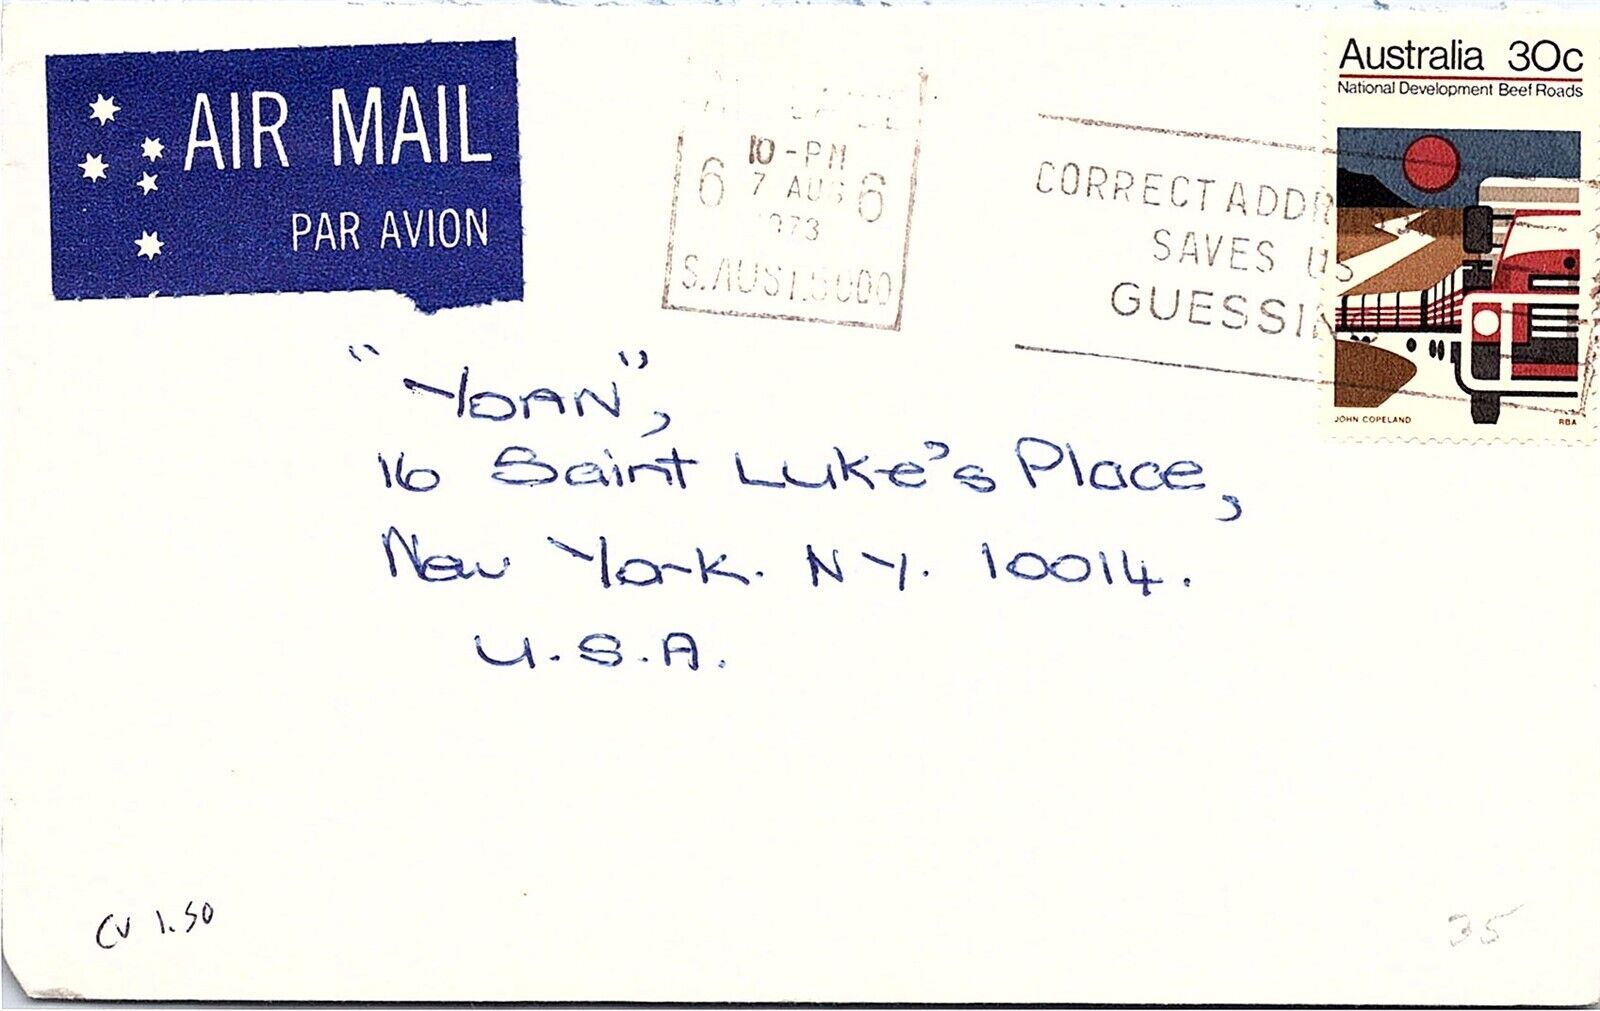 AIR MAIL
PAR AVION
10-PM
6 7 AUG 6
1973
S.AUST.5000
CORRECT ADDR
SAVES US
GUESSIN
Australia 30c
National Development Beef Roads
JOHN COPELAND RBA
"YOAN",
16 Saint Luke's Place,
New York. NY. 10014.
U.S.A.
CV 1.50
35